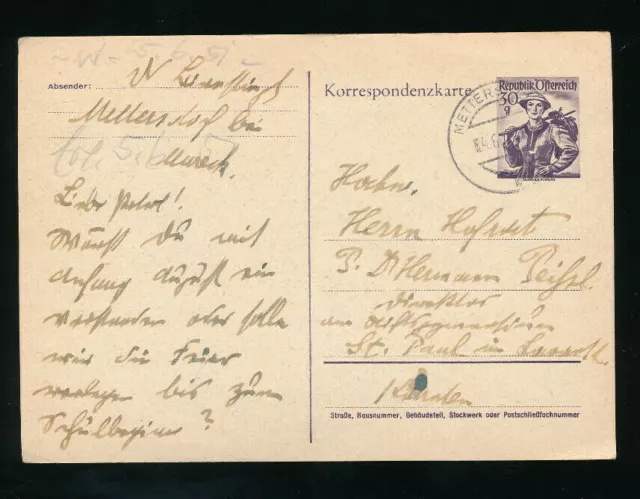 5. 6. 51
Absender:
Mettersdorf bei
Mureck.
erl. 5. 6. 51
Wärst Du mit
Anfang August ein
verstanden oder sollen
wir die Feier
verlegen bis zum
Schulbeginn?
Korrespondenzkarte
Republik Österreich
30
g
METTERS
Hochw.
Herrn Hofrat
P. Dr Hermann Peißl.
Direktor
am Stiftsgymnasium
St. Paul im Lavantt.
Kärnten
Straße, Hausnummer, Gebäudeteil, Stockwerk oder Postschließfachnummer